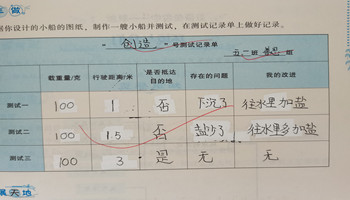 做
你设计的小船的图纸，制作一艘小船并测试，在测试记录单上做好记录。
创造 号测试记录单
五二班 组
载重量/克 行驶距离/米 是否抵达目的地 存在的问题 我的改进
测试一 100 1 否 下沉了 往水里加盐
测试二 100 1.5 否 盐少了 往水里多加盐
测试三 100 3 是 无 无
天地